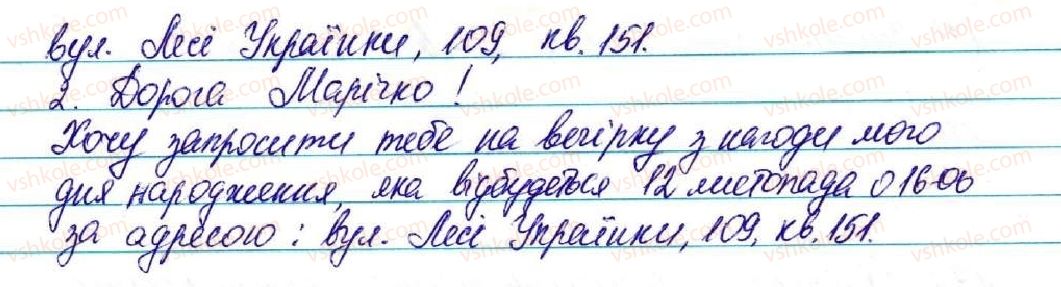 вул. Лесі Українки, 109, кв. 151.
2. Дорога Марічко!
Хочу запросити тебе на вечірку з нагоди мого
дня народження, яка відбудеться 12 листопада о 16-00
за адресою: вул. Лесі Українки, 109, кв. 151.